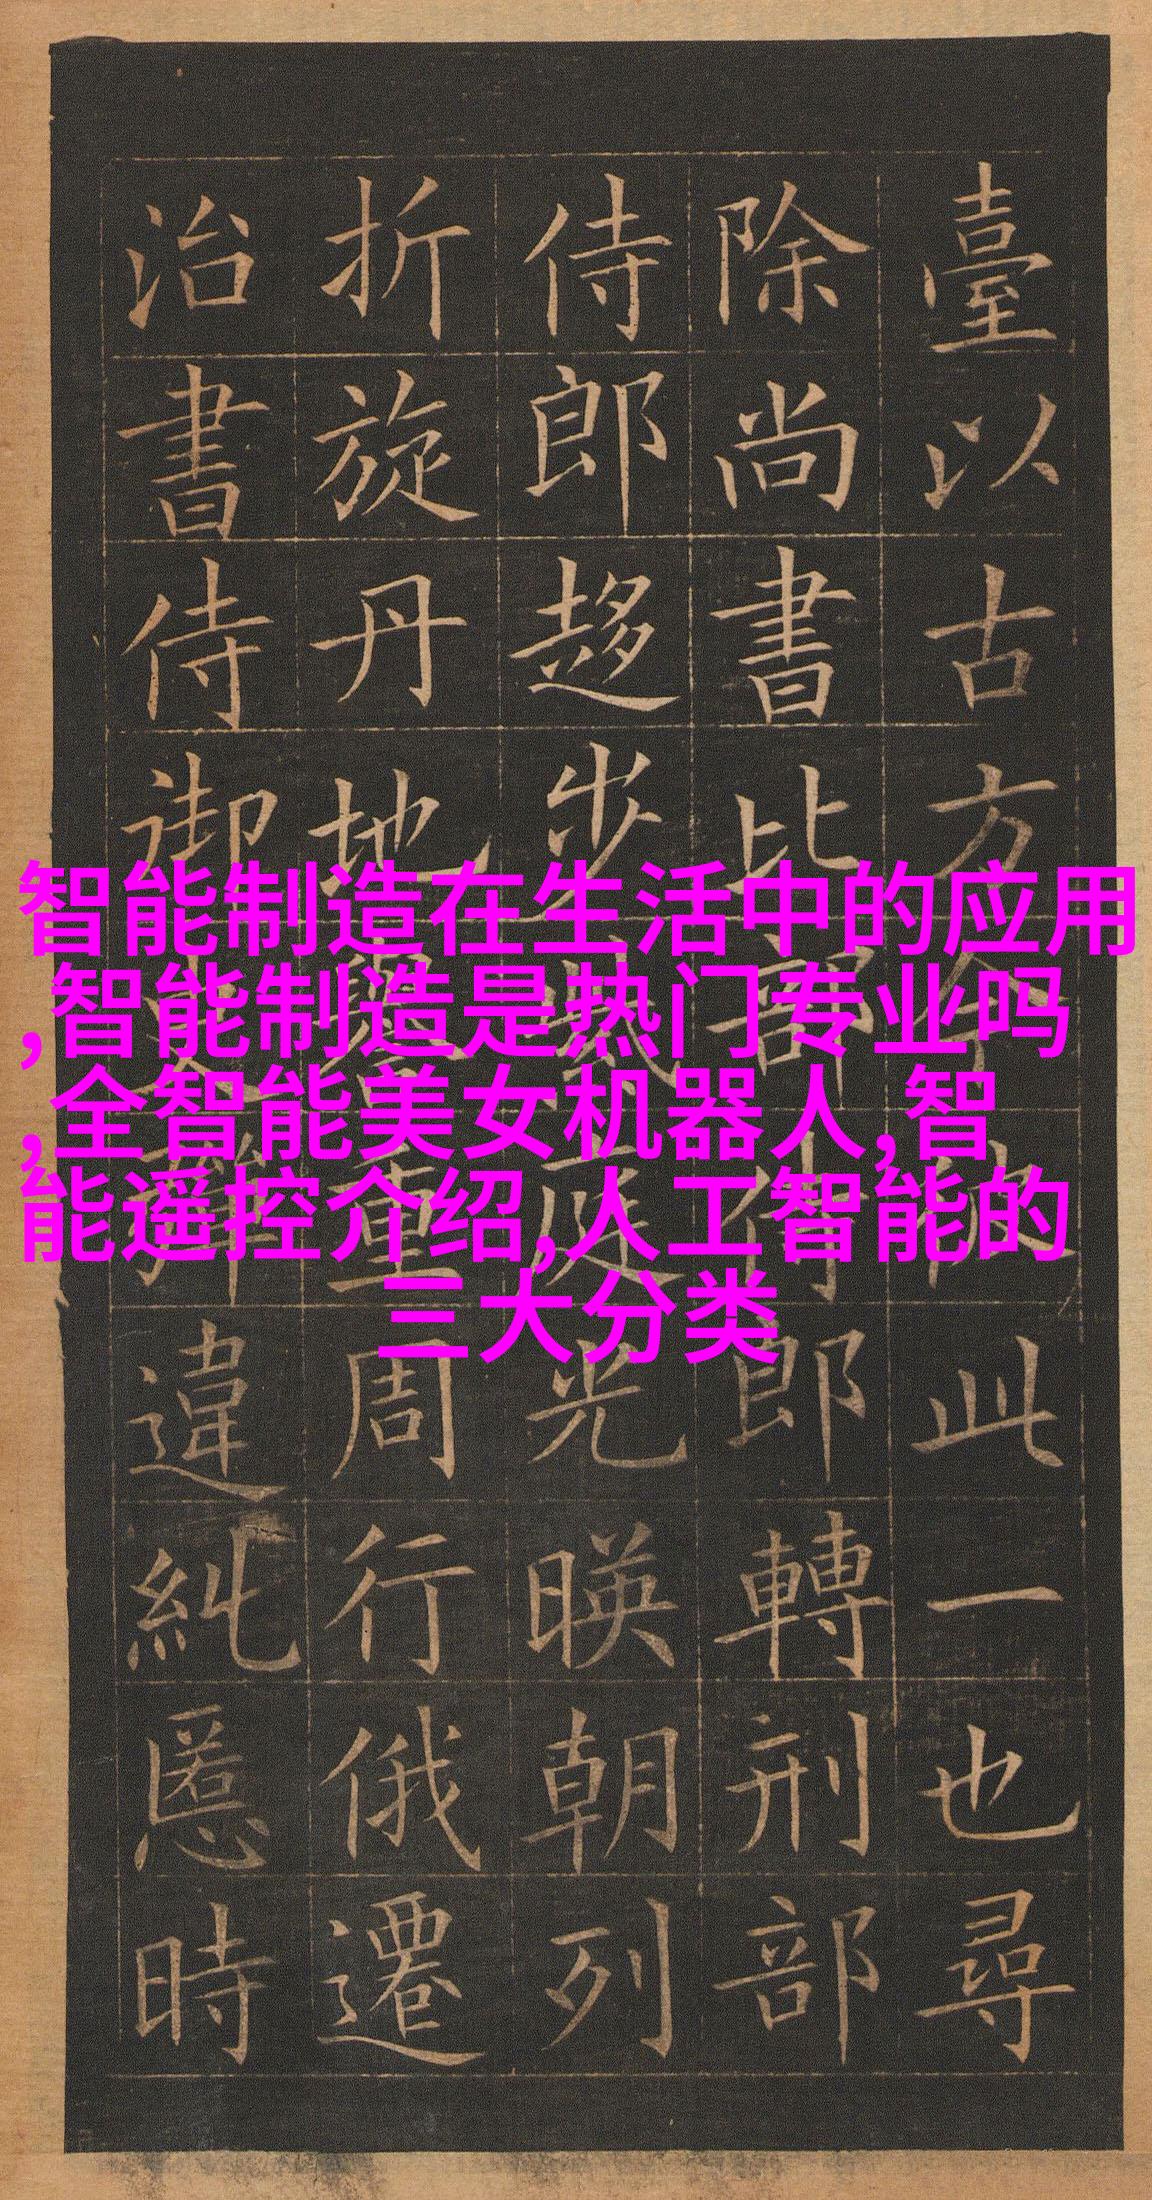 智能制造在生活中的应用
,智能制造是热门专业吗
,全智能美女机器人,智
能遥控介绍,人工智能的
三大分类
臺以古方此一也尋
除尚書比部侍郎轉刑部
侍郎趍步庭光暎朝列
折旋丹地譽重周行俄遷
治書侍御史彈違糺慝時